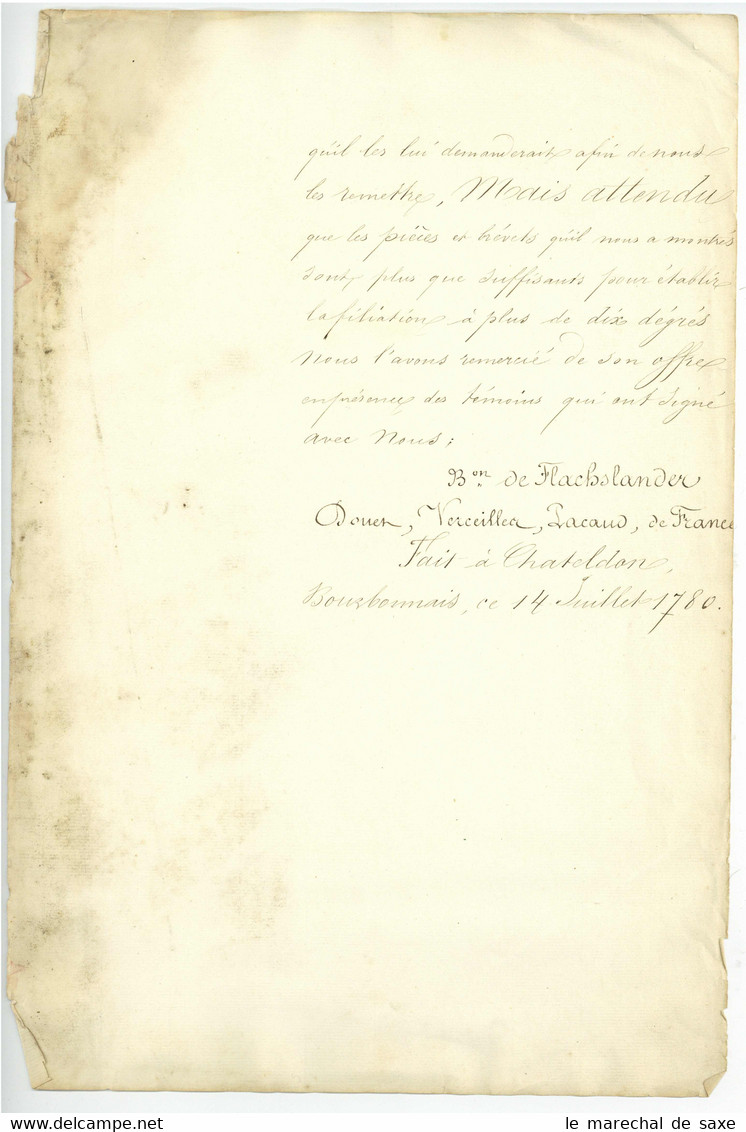 qu'il les lui demanderait afin de nous
les remettre, Mais attendu
que les pièces et brévets qu'il nous a montrés
sont plus que suffisants pour établir
la filiation à plus de dix dégrés
Nous l'avons remercié de son offre
en présence des témoins qui ont signé
avec Nous;
Bon de Flachslander
Douet, Verceilles, Pacaud, de France
Fait à Chateldon,
Bourbonnais, ce 14 Juillet 1780.
le marechal de saxe